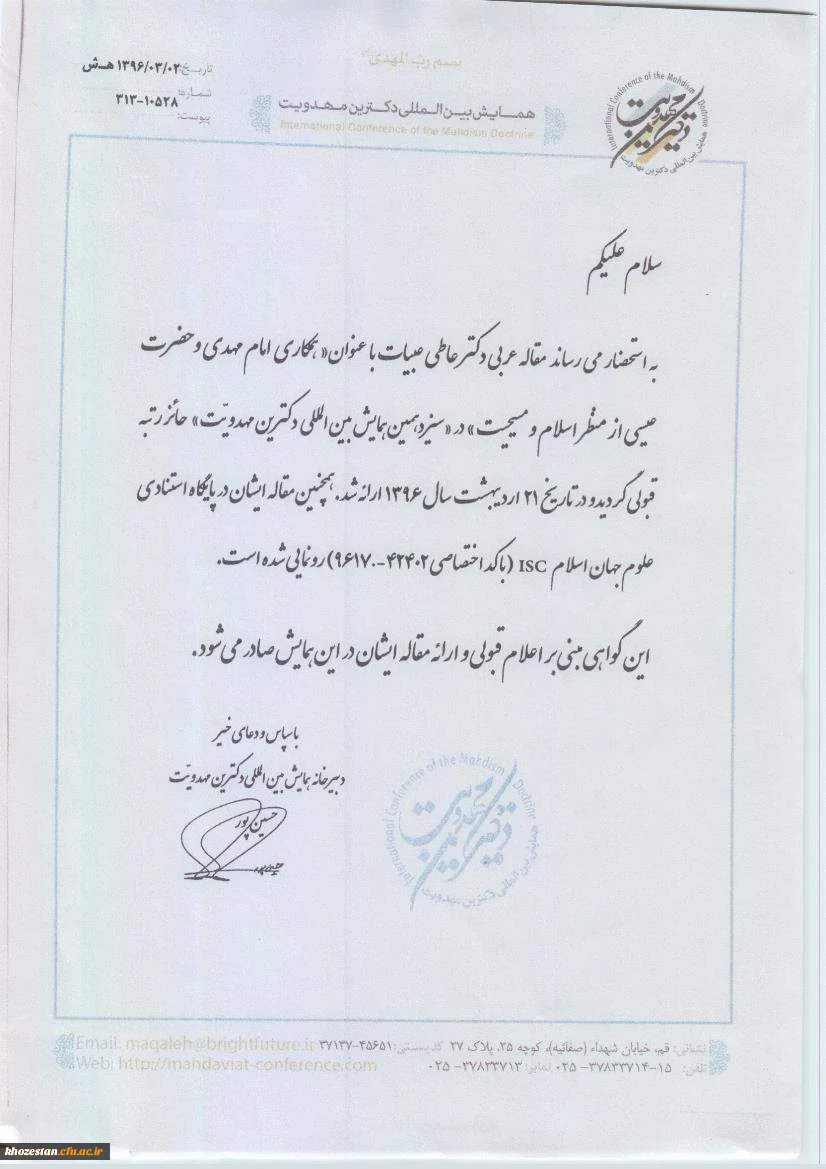 بسم رب المهدی
تاریخ: ۱۳۹۶/۰۳/۰۲ هـ.ش
شماره: ۳۱۳-۱۰۵۲۸
پیوست:
همایش بین‌المللی دکترین مهدویت
International Conference of the Mahdism Doctrine
International Conference of the Mahdism Doctrine
دکترین مهدویت
همایش بین‌المللی دکترین مهدویت
سلام علیکم
به استحضار می رساند مقاله عربی دکتر عاطی عبیات با عنوان « همکاری امام مهدی و حضرت
عیسی از منظر اسلام و مسیحیت » در « سیزدهمین همایش بین المللی دکترین مهدویّت » حائز رتبه
قبولی گردید و در تاریخ ۲۱ اردیبهشت سال ۱۳۹۶ ارائه شد. همچنین مقاله ایشان در پایگاه استنادی
علوم جهان اسلام ISC (با کد اختصاصی ۴۲۴۰۲-۹۶۱۷۰) رونمایی شده است.
این گواهی مبنی بر اعلام قبولی و ارائه مقاله ایشان در این همایش صادر می شود.
با سپاس و دعای خیر
دبیرخانه همایش بین المللی دکترین مهدویّت
حسین پور
International Conference of the Mahdism Doctrine
دکترین مهدویت
همایش بین‌المللی دکترین مهدویت
نشانی: قم، خیابان شهداء (صفائیه)، کوچه ۲۵، پلاک ۲۷ کد پستی: ۴۵۶۵۱-۳۷۱۳۷
Email: maqaleh@brightfuture.ir
تلفن: ۱۵-۳۷۸۳۳۷۱۴- ۰۲۵ نمابر: ۳۷۸۳۳۷۱۳- ۰۲۵
Web: http://mahdaviat-conference.com
khozestan.cfu.ac.ir